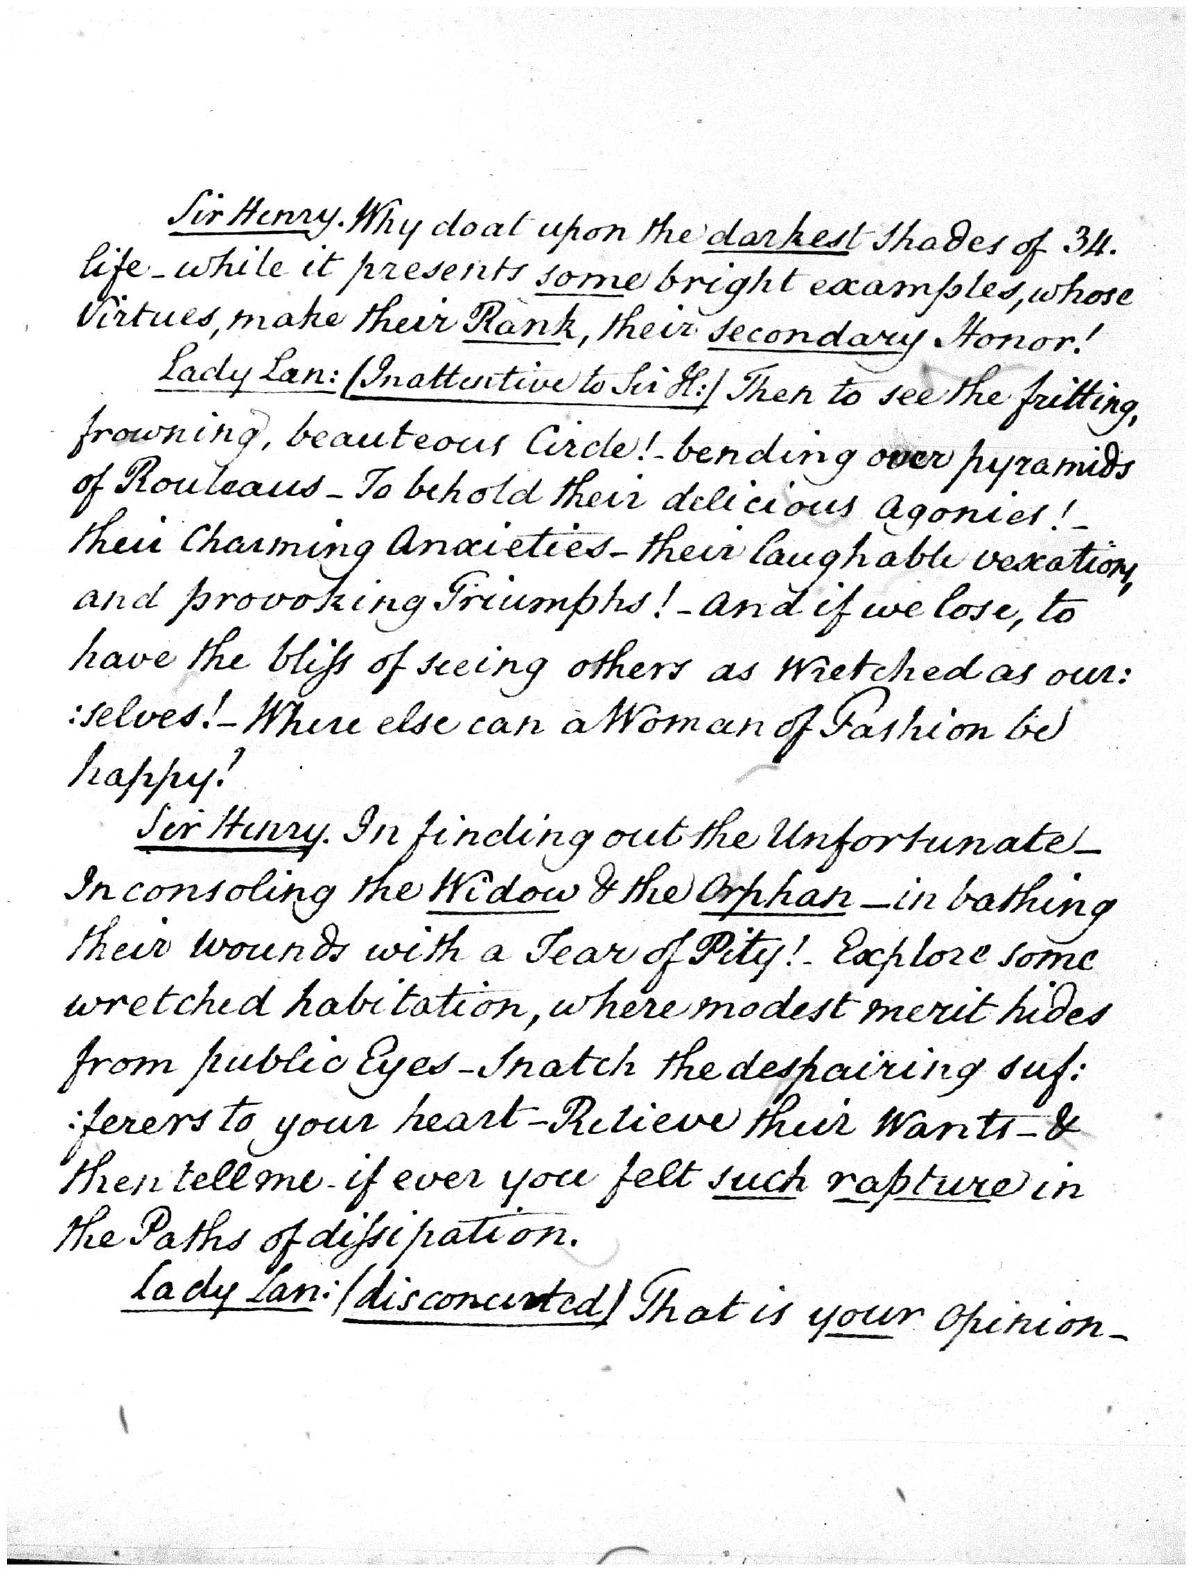 Sir Henry. Why doat upon the darkest shades of 34.
life - while it presents some bright examples, whose
Virtues, make their Rank, their secondary Honor!
Lady Lan: (Inattentive to Sir H:) Then to see the fritting,
frowning, beauteous Circle! - bending over pyramids
of Rouleaus - To behold their delicious Agonies! -
their Charming Anxieties - their laughable vexations,
and provoking Triumphs! - And if we lose, to
have the bliſs of seeing others as Wretched as our:
:selves! - Where else can a Woman of Fashion be
happy!
Sir Henry. In finding out the Unfortunate -
In consoling the Widow & the Orphan - in bathing
their wounds with a Tear of Pity! - Explore some
wretched habitation, where modest merit hides
from public Eyes - Snatch the despairing suf:
:ferers to your heart - Relieve their Wants - &
then tell me - if ever you felt such rapture in
the Paths of diſsipation.
Lady Lan: (disconcerted) That is your Opinion -